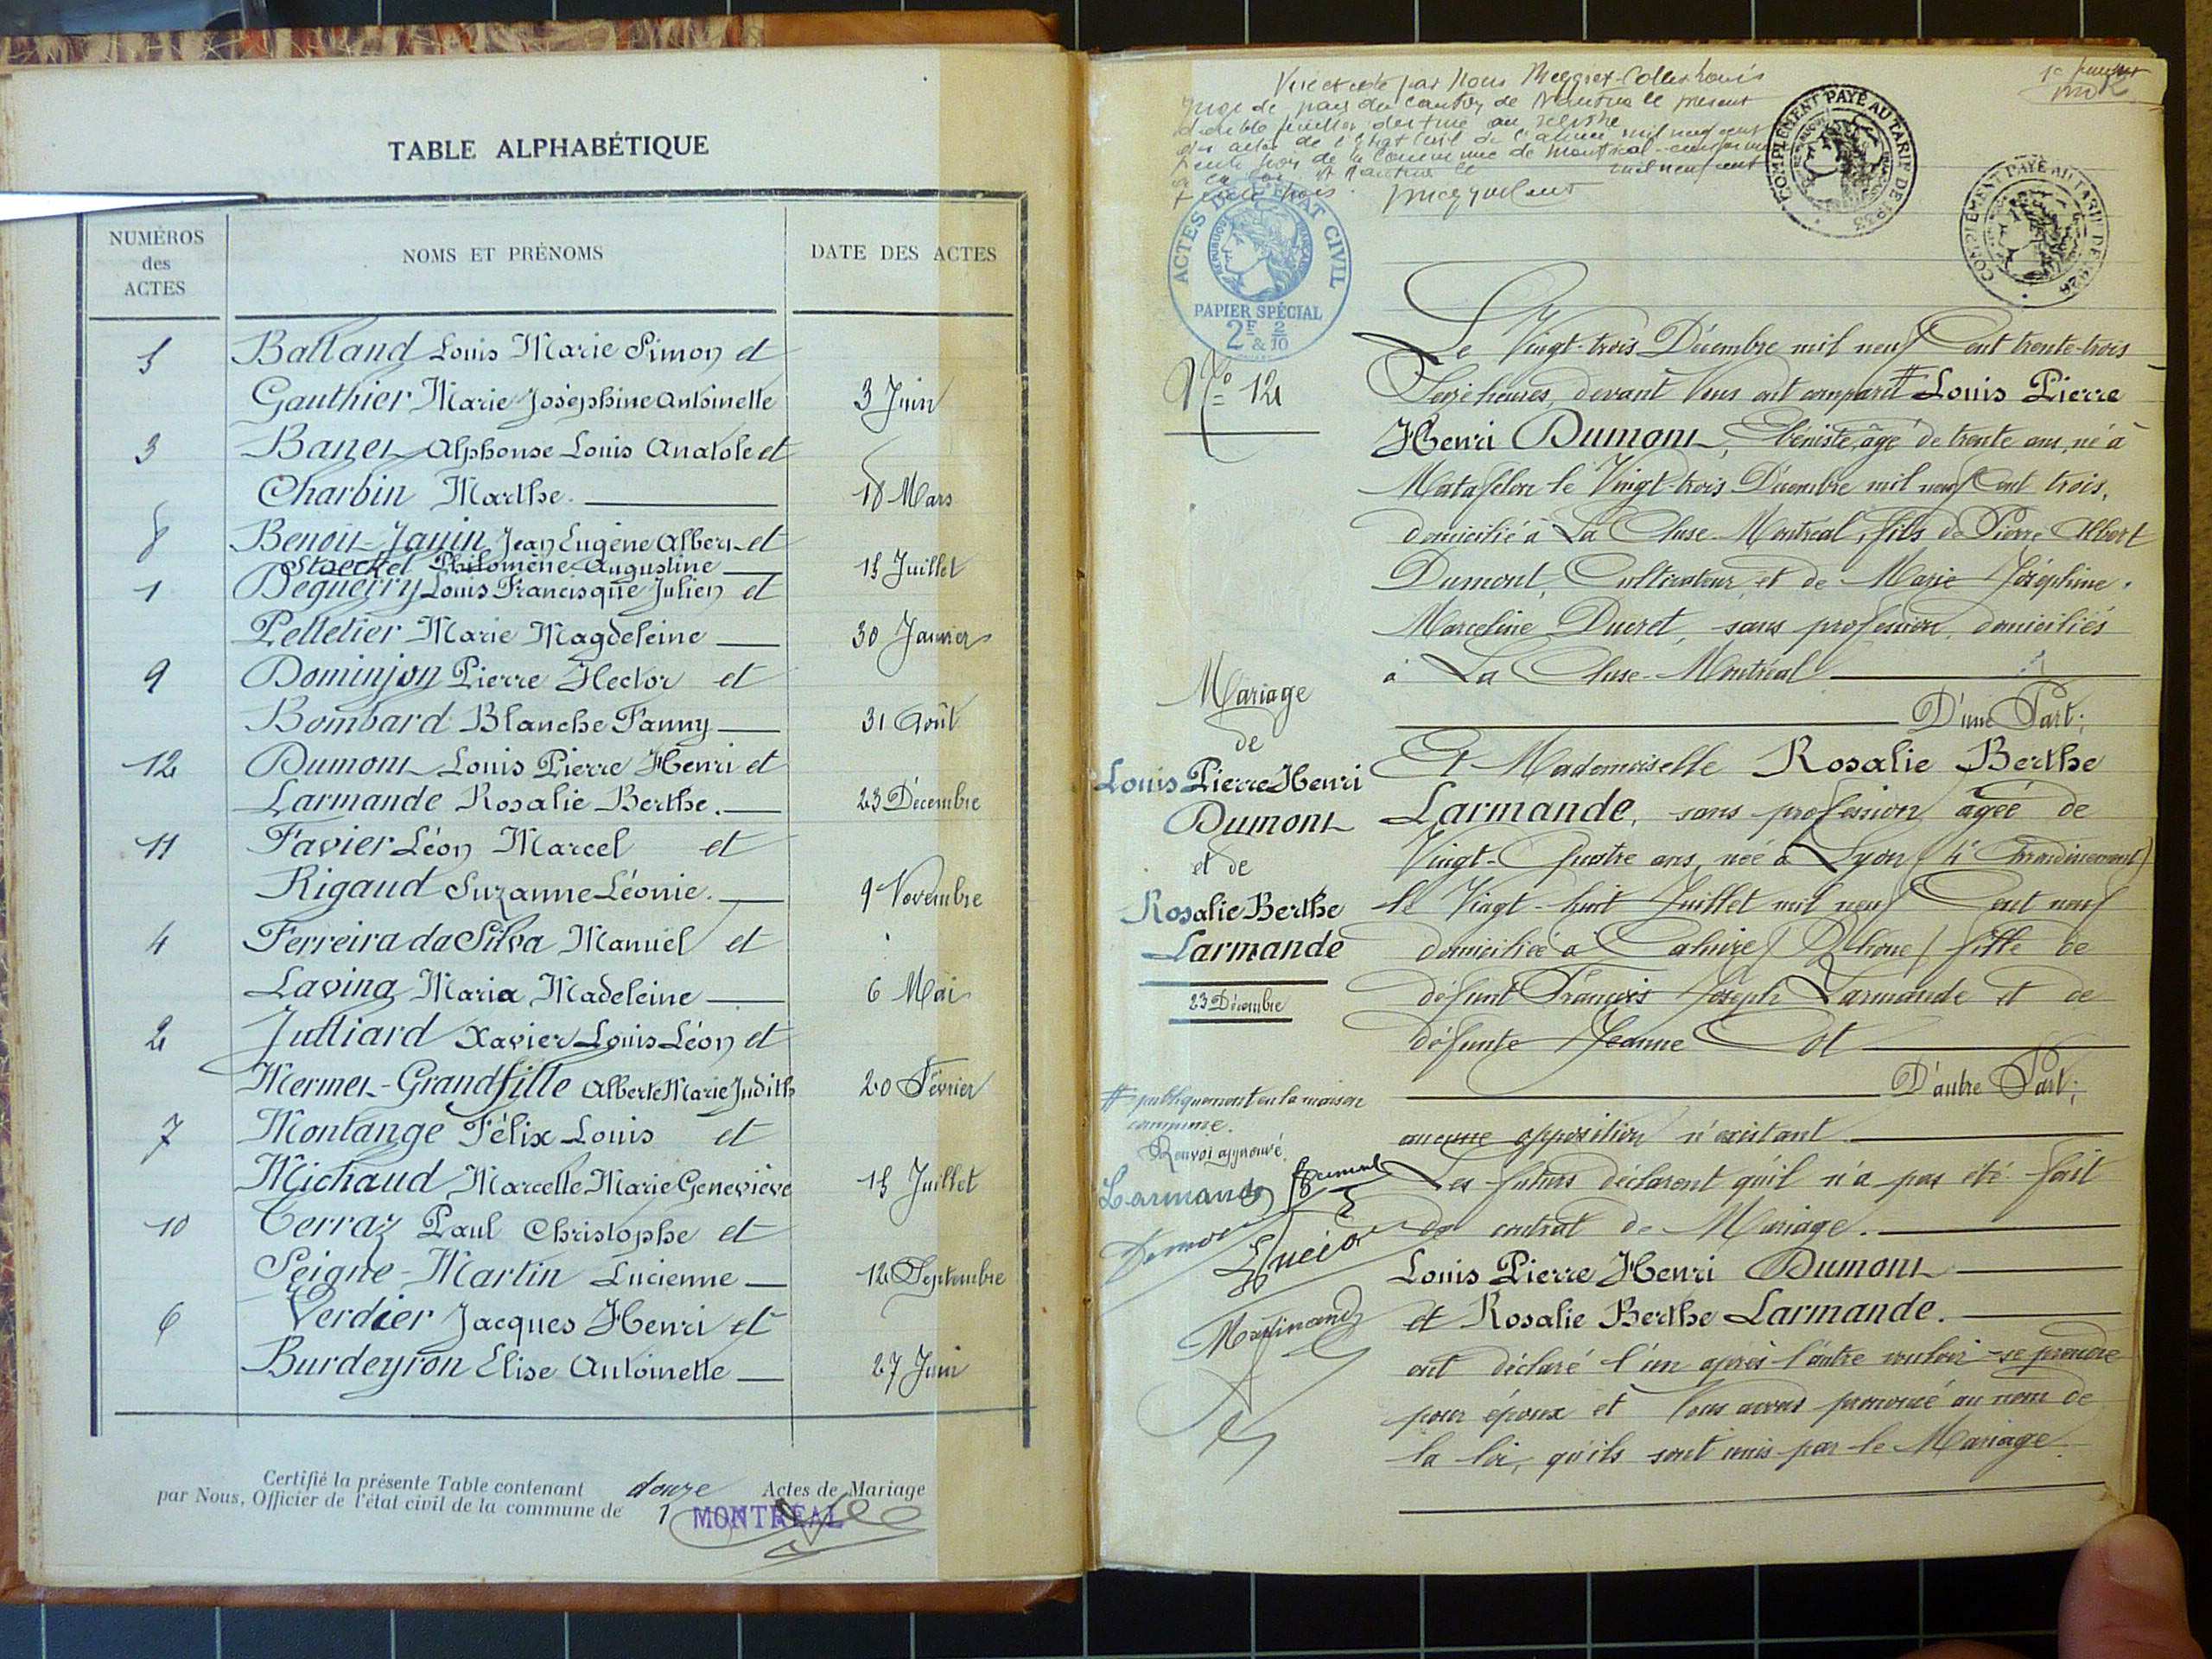 TABLE ALPHABÉTIQUE
NUMÉROS
des
ACTES
NOMS ET PRÉNOMS
DATE DES ACTES
5 Balland Louis Marie Simon et
Gauthier Marie Joséphine Antoinette 3 Juin
3 Banet Alphonse Louis Anatole et
Charbin Marthe. 18 Mars
8 Benoit-Janin Jean Eugène Albert et
Stoeckel Philomène Augustine 15 Juillet
1 Deguerry Louis Francisque Julien et
Pelletier Marie Magdeleine 30 Janvier
9 Dominjon Pierre Hector et
Bombard Blanche Fanny 31 Août
12 Dumont Louis Pierre Henri et
Larmande Rosalie Berthe. 23 Décembre
11 Favier Léon Marcel et
Rigaud Suzanne Léonie. 9 Novembre
4 Ferreira da Silva Manuel et
Laving Maria Madeleine 6 Mai
2 Julliard Xavier Louis Léon et
Mermet-Grandfille Alberte Marie Judith 20 Février
7 Montange Félix Louis et
Michaud Marcelle Marie Geneviève 15 Juillet
10 Terraz Paul Christophe et
Seigne-Martin Lucienne 12 Septembre
6 Verdier Jacques Henri et
Burdeyron Elise Antoinette 27 Juin
Certifié la présente Table contenant douze Actes de Mariage
par Nous, Officier de l'état civil de la commune de MONTRÉAL
Juge de paix du canton de Nantua le présent
double feuillet destiné au registre
des actes de l'Etat Civil de l'année mil neuf cent
trente trois de la commune de Montréal
mil neuf cent
COMPLÉMENT PAYÉ AU TARIF DE
COMPLÉMENT PAYÉ AU TARIF DE
ACTES DE L'ÉTAT CIVIL
RÉPUBLIQUE FRANÇAISE
PAPIER SPÉCIAL
2F & 2/10
No 12
Mariage
de
Louis Pierre Henri
Dumont
et de
Rosalie Berthe
Larmande
23 Décembre
# publiquement en la maison
commune.
Renvoi approuvé
Larmande
Martinand
Le Vingt-trois Décembre mil neuf Cent trente-trois
Seize heures, devant Nous ont comparu # Louis Pierre
Henri Dumont, Ebéniste, âgé de trente ans, né à
Matafelon le Vingt-trois Décembre mil neuf Cent trois,
domicilié à La Cluse-Montréal, fils de Pierre Albert
Dumont, Cultivateur, et de Marie Joséphine
Marceline Ducret, sans profession, domiciliés
à La Cluse-Montréal
D'une Part;
Et Mademoiselle Rosalie Berthe
Larmande, sans profession âgée de
Vingt-Quatre ans, née à Lyon (4e Arrondissement)
le Vingt-huit Juillet mil neuf Cent neuf
domiciliée à Caluire (Rhône) fille de
défunt François Joseph Larmande et de
défunte Jeanne Cot
D'autre Part;
aucune opposition n'existant
Les futurs déclarent qu'il n'a pas été fait
de contrat de Mariage.
Louis Pierre Henri Dumont
et Rosalie Berthe Larmande.
ont déclaré l'un après l'autre vouloir se prendre
pour époux et Nous avons prononcé au nom de
la loi, qu'ils sont unis par le Mariage